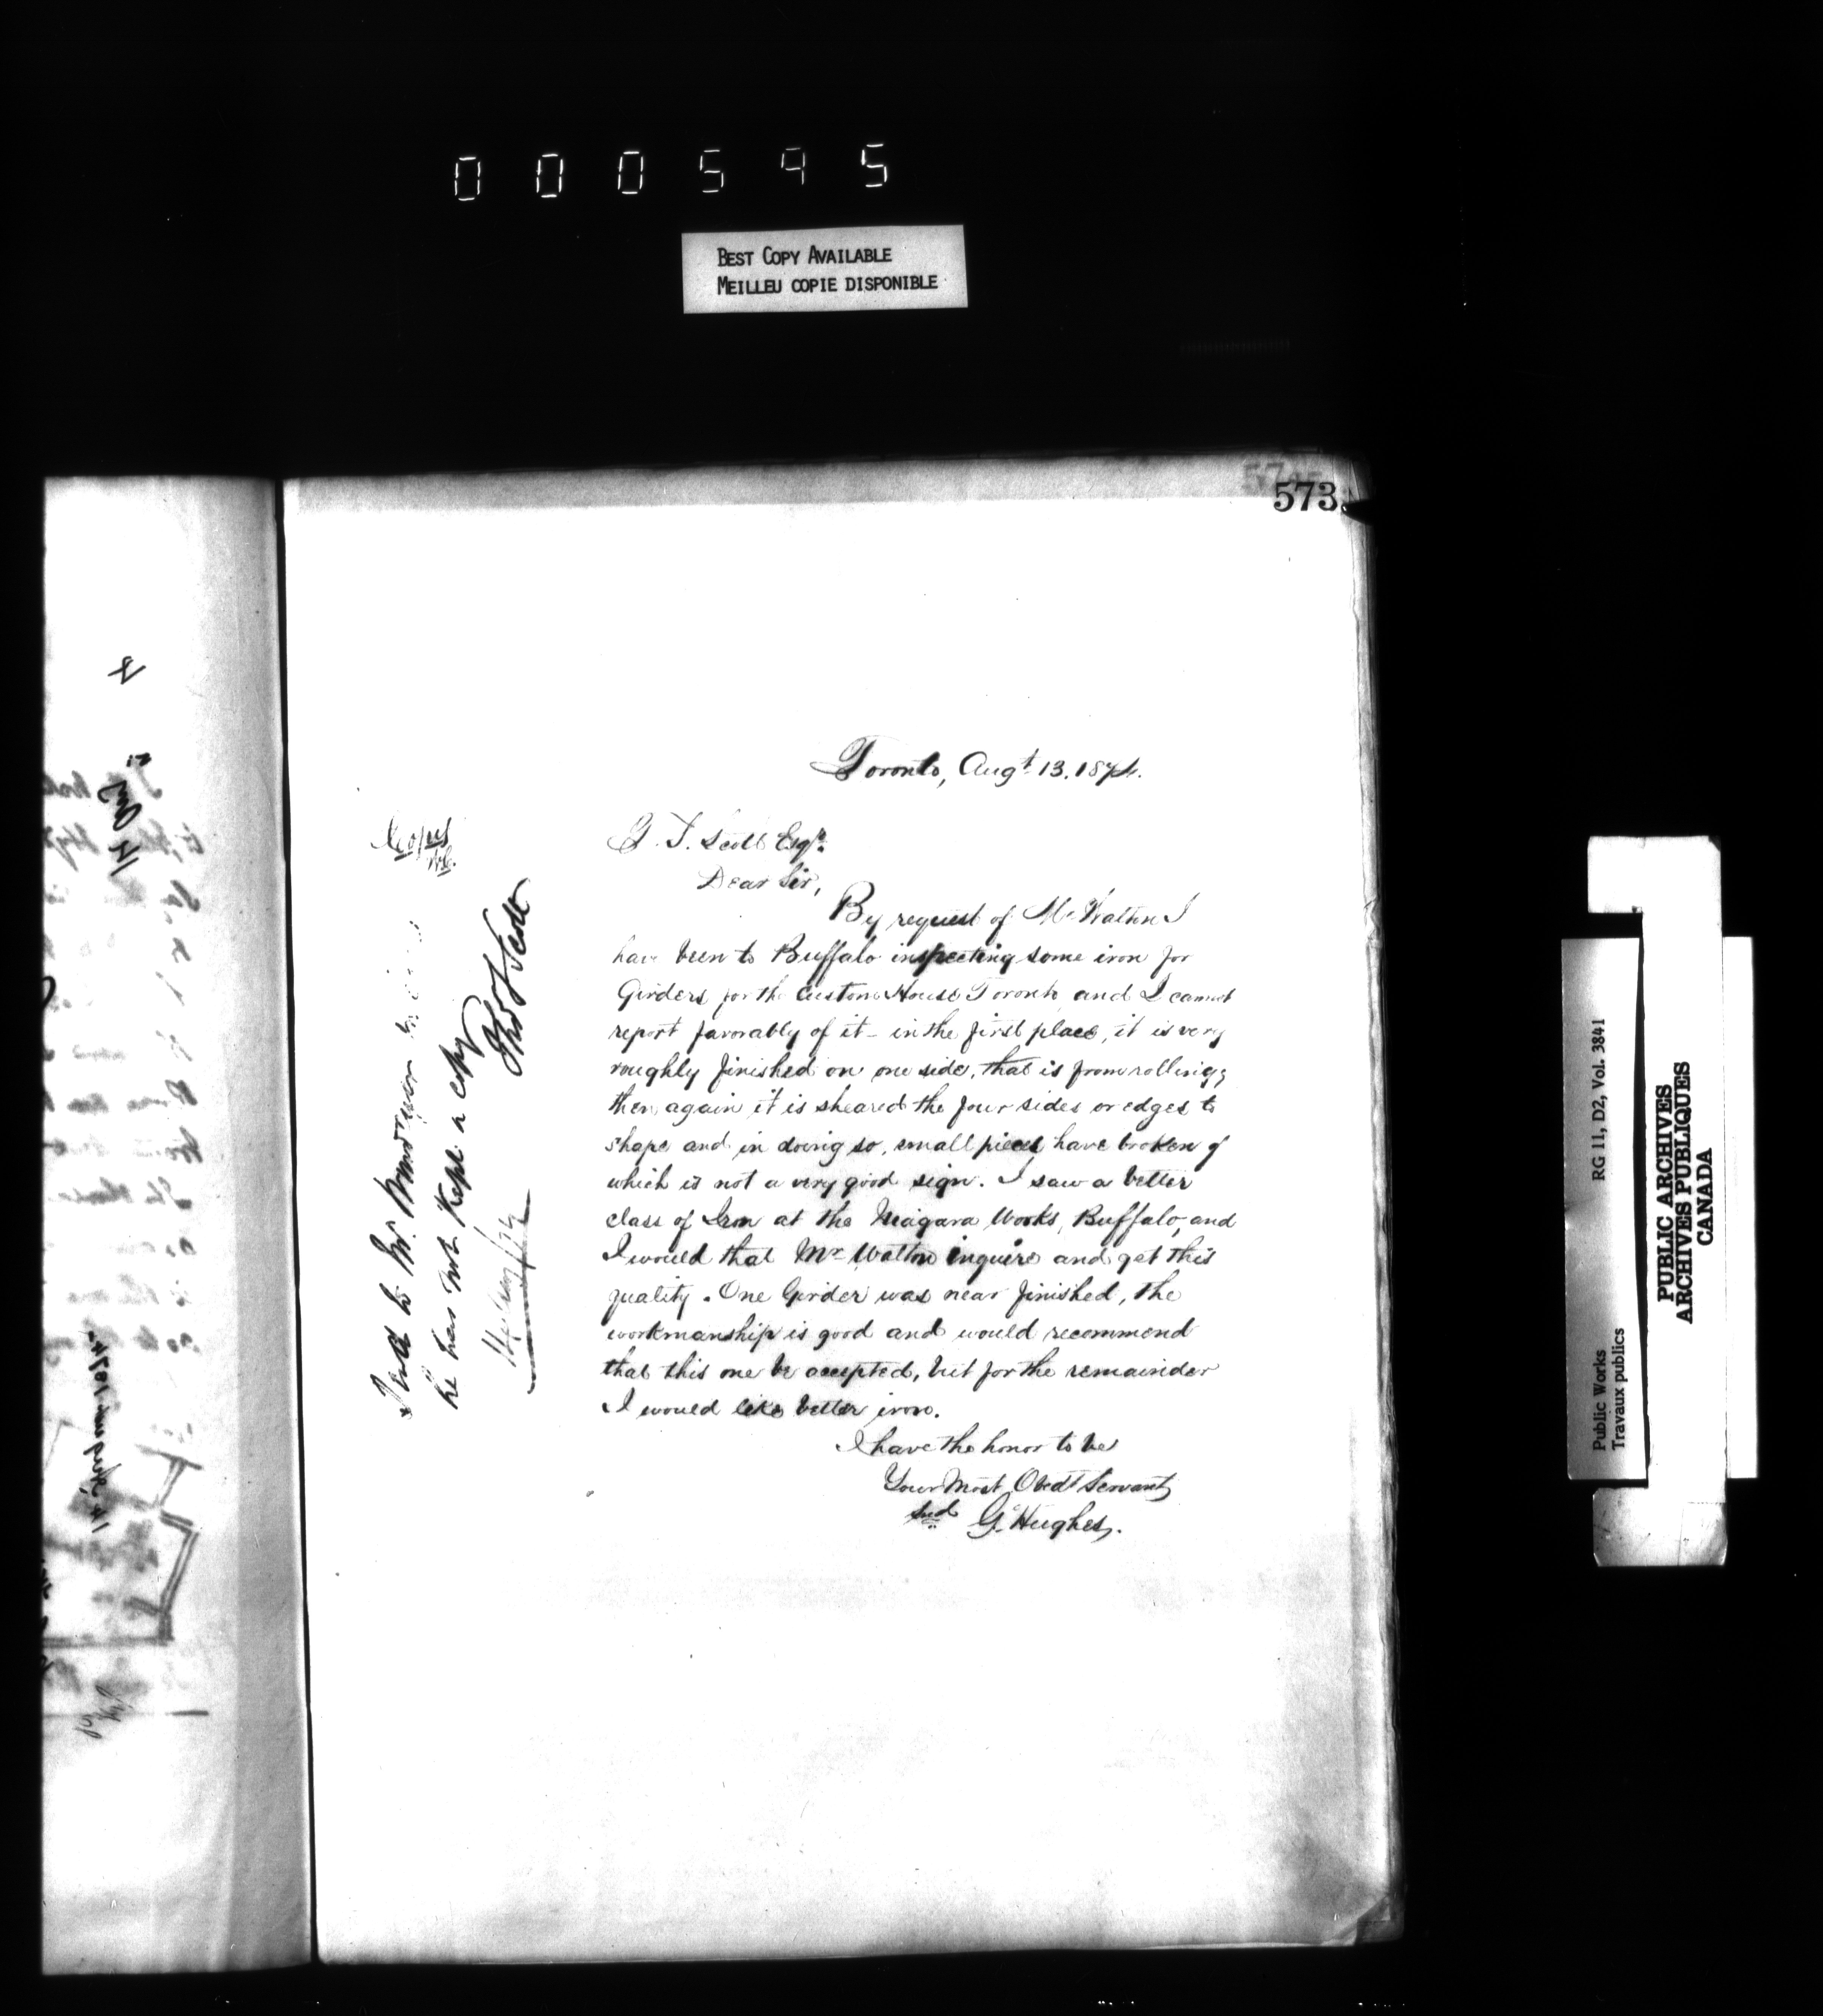 000595
BEST COPY AVAILABLE
MEILLEU COPIE DISPONIBLE
573
Toronto, Augt 13. 1874.
T. F. Scott Esqr.
Dear Sir,
By request of Mr Walton I
have been to Buffalo inspecting some iron for
Girders for the Custom House Toronto and I cannot
report favorably of it - in the first place, it is very
roughly finished on one side, that is from rolling;
then again it is sheared the four sides or edges to
shape and in doing so, small pieces have broken of
which is not a very good sign. I saw a better
class of Iron at the Niagara Works, Buffalo, and
I would that Mr Walton inquire and get this
quality. One Girder was near finished, the
workmanship is good and would recommend
that this one be accepted, but for the remainder
I would like better iron.
I have the honor to be
Your Most Obedt Servant
G. Hughes.
Copied
he has not kept a copy
Thos Scott
14 Aug
RG 11, D2, Vol. 3841
Public Works
Travaux publics
PUBLIC ARCHIVES
ARCHIVES PUBLIQUES
CANADA